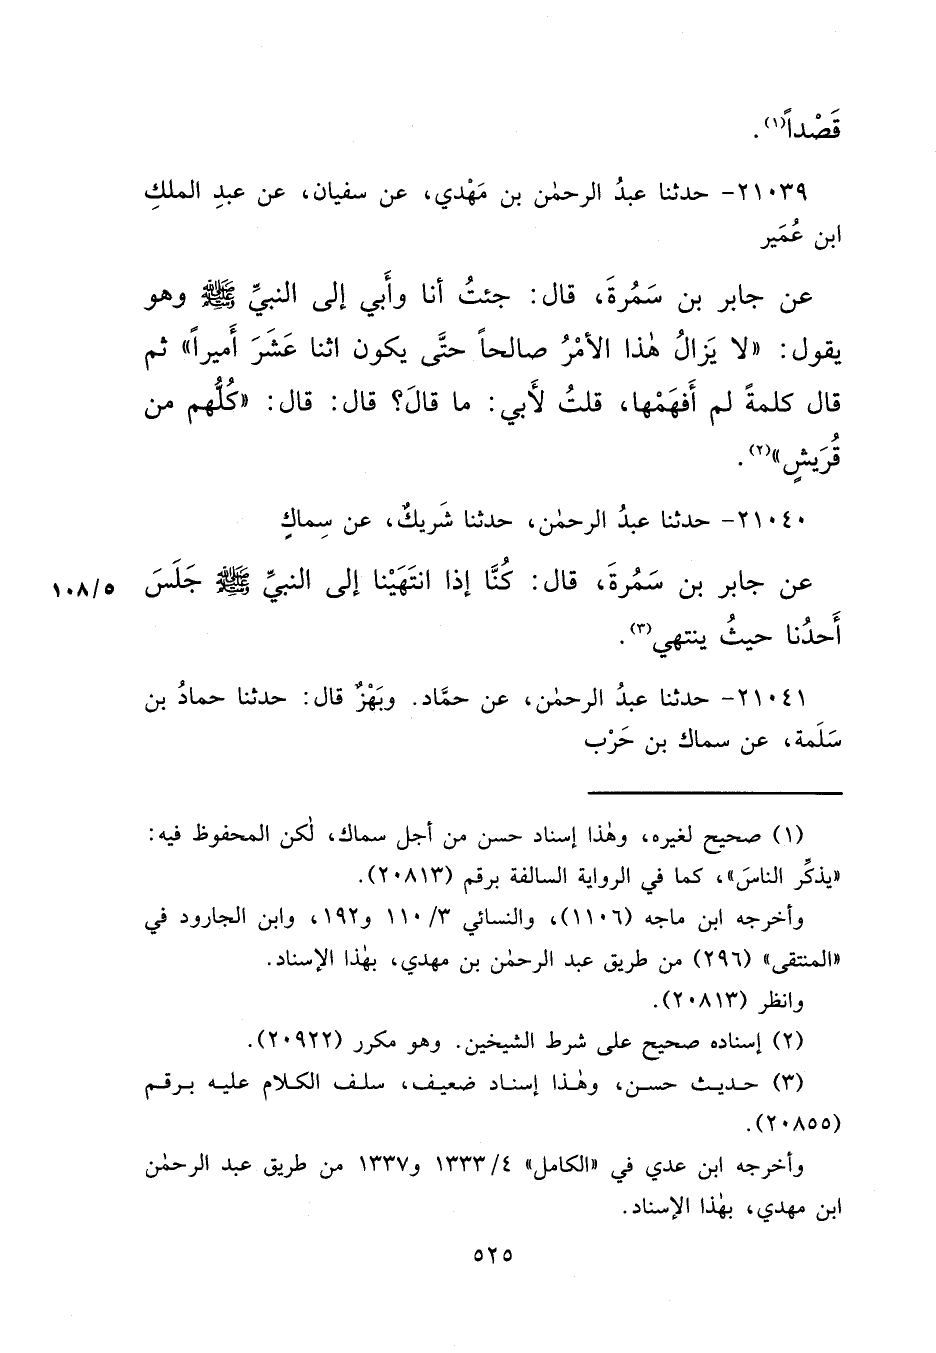 قَصْداً(١).
٢١٠٣٩- حدثنا عبدُ الرحمٰن بن مَهْدي، عن سفيان، عن عبدِ الملكِ
ابن عُمَير
عن جابر بن سَمُرةَ، قال: جئتُ أنا وأَبي إلى النبيِّ ﷺ وهو
يقول: «لا يَزالُ هٰذا الأمْرُ صالحاً حتَّى يكون اثنا عَشَرَ أَميراً» ثم
قال كلمةً لم أَفهَمْها، قلتُ لأَبي: ما قالَ؟ قال: قال: «كُلُّهم من
قُرَيشٍ»(٢).
٢١٠٤٠- حدثنا عبدُ الرحمٰن، حدثنا شَريكٌ، عن سِماكٍ
عن جابر بن سَمُرةَ، قال: كُنَّا إذا انتَهَيْنا إلى النبيِّ ﷺ جَلَسَ ١٠٨/٥
أَحدُنا حيثُ ينتهي(٣).
٢١٠٤١- حدثنا عبدُ الرحمٰن، عن حمَّاد. وبَهْزٌ قال: حدثنا حمادُ بن
سَلَمة، عن سماك بن حَرْب
(١) صحيح لغيره، وهٰذا إسناد حسن من أجل سماك، لٰكن المحفوظ فيه:
«يذكِّر الناسَ»، كما في الرواية السالفة برقم (٢٠٨١٣).
وأخرجه ابن ماجه (١١٠٦)، والنسائي ١١٠/٣ و١٩٢، وابن الجارود في
«المنتقى» (٢٩٦) من طريق عبد الرحمٰن بن مهدي، بهٰذا الإسناد.
وانظر (٢٠٨١٣).
(٢) إسناده صحيح على شرط الشيخين. وهو مكرر (٢٠٩٢٢).
(٣) حديث حسن، وهٰذا إسناد ضعيف، سلف الكلام عليه برقم
(٢٠٨٥٥).
وأخرجه ابن عدي في «الكامل» ١٣٣٣/٤ و١٣٣٧ من طريق عبد الرحمٰن
ابن مهدي، بهٰذا الإسناد.
٥٢٥